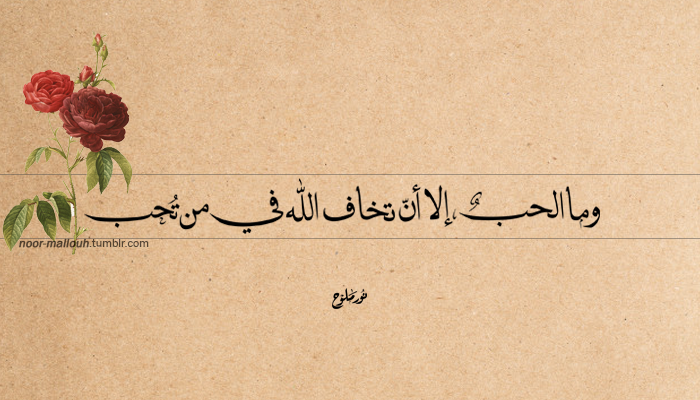 وما الحبُ، إلا أنّ تخاف الله في من تُحب
noor-mallouh.tumblr.com
نور ملوح